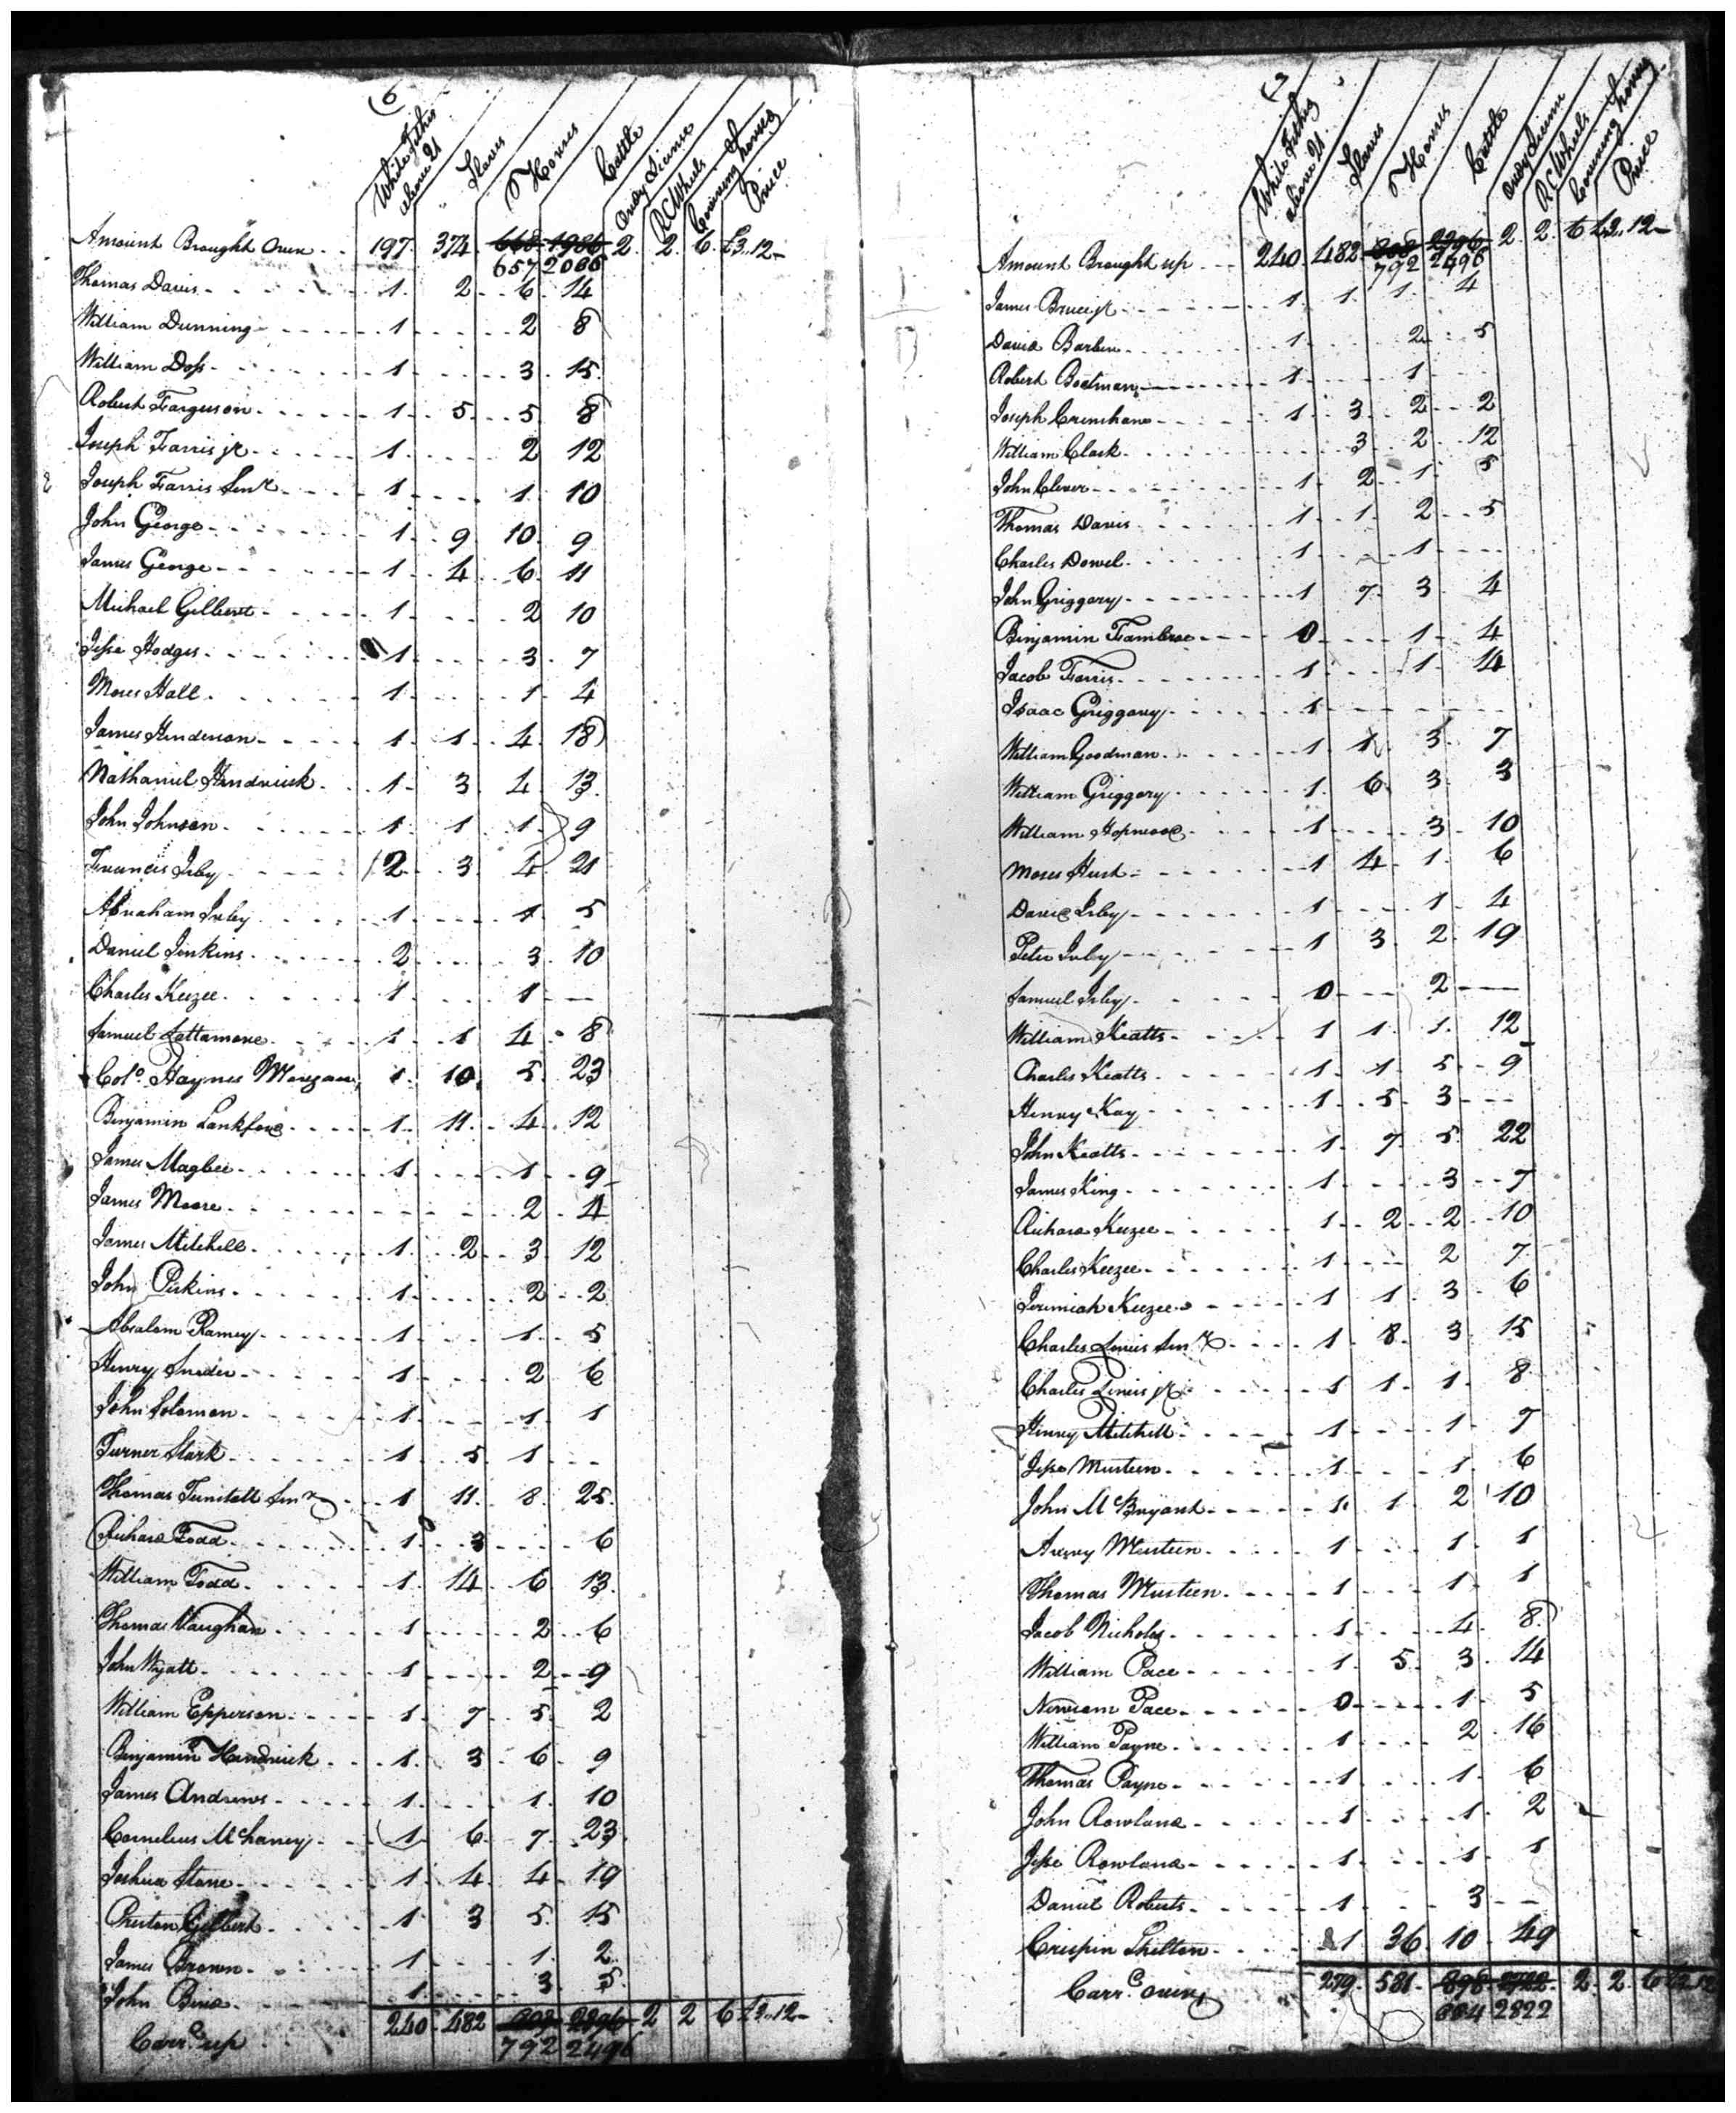 (6
White Tithes above 21 Slaves Horses Cattle Ordy License R C Wheels Covering horses Price
Amount Brought Over - - 197. 374. 668 1986 2. 2. 6. £3..12-
657 2066
Thomas Davis - - - - - 1. 2 - - 6 - 14
William Dunning - - - - - 1 - - - - 2 8
William Doss - - - - - 1 - - - - 3 - 15
Robert Farguson - - - - - 1 - 5 - - 5 8
Joseph Farris jr - - - - - 1 - - - - 2 12
Joseph Farris Senr - - - - 1 - - - - 1 10
John George - - - - - 1 - 9 10 9
James George - - - - - 1 - 4 - 6 - 11
Michael Gilbert - - - - - 1 - - - - 2 10
Jesse Hodges - - - - - 1 - - - - 3 - 7
Moses Hall - - - - - 1 - - - - 1 - 4
James Henderson - - - - 1 - 1 - 4 - 18
Nathaniel Hendrick - - 1 - 3 4 13
John Johnson - - - - - 1 - 1 1 9
Francis Irby - - - - 2 - 3 - 4 - 21
Abraham Irby - - - - 1 - - - - 1 5
Daniel Jenkins - - - - - 2 - - - - 3 - 10
Charles Keezee - - - - - 1 - - - - 1 - -
Samuel Lattamore - - - 1 - 1 4 - 8
Colo. Haynes Morgan 1 - 10 5 - 23
Benjamin Lankford - - - - 1 - 11 - 4 - 12
James Magbee - - - - - 1 - - - - 1 - 9
James Moore - - - - - - - - - 2 - 4
James Mitchell - - - - - 1 - 2 - 3 - 12
John Pirkins - - - - - 1 - - - - 2 - 2
Absalom Ramey - - - - - 1 - - - 1 - 5
Henry Snider - - - - - 1 - - - - 2 6
John Soloman - - - - - 1 - - - - 1 1
Turner Stark - - - - - 1 - 5 1 - -
Thomas Tunstall Senr - - 1 11 - 8 - 25
Richard Todd - - - - - 1 - 3 - - - 6
William Todd - - - - - 1 - 14 - 6 - 13
Thomas Vaughan - - - - 1 - - - - 2 - 6
John Wyatt - - - - - 1 - - - - 2 - 9
William Epperson - - - - 1 - 7 - 5 - 2
Benjamin Hendrick - - - 1 - 3 - 6 - 9
James Andrews - - - - 1 - - - 1 - 10
Cornelius McHaney - - - 1 - 6 - 7 - 23
Joshua Stone - - - - - 1 - 4 - 4 - 19
Preston Gilbert - - - - - 1 - 3 - 5 - 15
James Brown - - - - - 1 - - - 1 - 2
John Bird - - - - - 1 - - - 3 - 5
Carrd. up - - 240 - 482 2296 2 2 6 £3..12-
792 2496
White Tithes above 21 Slaves Horses Cattle Ordy License R C Wheels Covering horses Price
Amount Brought up - - - 240. 482. 2296 2. 2. 6 £3..12-
792 2496
James Bruce jr - - - - - 1 - 1 - 1 - 4
David Barber - - - - - 1 - - - 2 - 5
Robert Boatman - - - - - 1 - - - 1 - - -
Joseph Crenshaw - - - - - 1 - 3 - 2 - 2
William Clark - - - - - - 3 - 2 - 12
John Clever - - - - - 1 - 2 - 1 - 5
Thomas Davis - - - - - 1 - 1 2 - - 5
Charles Dowel - - - - - 1 - - - 1 - - -
John Griggory - - - - - 1 - 7 - 3 - 4
Benjamin - - - 0 - - - 1 - 4
Jacob Farris - - - - - 1 - - - 1 - 14
Isaac Griggory - - - - - 1 - - - - - -
William Goodman - - - - 1 1 3 - 7
William Griggory - - - - - 1 - 6 3 - 3
William Hopwood - - - - 1 - - - 3 - 10
Moses Hurt - - - - - 1 4 - 1 - 6
David Irby - - - - - 1 - - - 1 - 4
Peter Irby - - - - - 1 3 - 2 - 19
Samuel Irby - - - - - 0 - - - 2 - -
William Keatts - - - - 1 1 - 1 - 12
Charles Keatts - - - - - 1 - 1 5 - 9
Henry Kay - - - - - 1 - 5 - 3 - - -
John Keatts - - - - - 1 - 7 - 5 - 22
James King - - - - - 1 - - - 3 - 7
Richard Keezee - - - - - 1 - 2 - 2 - 10
Charles Keezee - - - - - 1 - - - 2 7
Jeremiah Keezee - - - - 1 1 - 3 - 6
Charles Lewis Senr - - - - 1 - 8 - 3 - 15
Charles Lewis jr - - - - - 1 1 - 1 - 8
Henry Mitchell - - - - - 1 - - - 1 - 7
Jesse Musteen - - - - - 1 - - - 1 - 6
John McBryant - - - - 1 - 1 - 2 10
Avery Musteen - - - - 1 - - - 1 - 1
Thomas Musteen - - - - 1 - - - 1 - 1
Jacob Nichols - - - - - 1 - - - 4 - 8
William Pace - - - - - 1 - 5 - 3 - 14
Newsom Pace - - - - - 0 - - - 1 - 5
William Payne - - - - - 1 - - - 2 - 16
Thomas Payne - - - - - 1 - - - 1 - 6
John Rowland - - - - - 1 - - - 1 - 2
Jesse Rowland - - - - - 1 - - - 1 - 1
Daniel Roberts - - - - - 1 - - - 3 - -
Crispin Shelton - - - - 1 36 10 - 49
Carrd. over 279. 581 - 898 2722 2. 2. 6 £3 12
884 2822